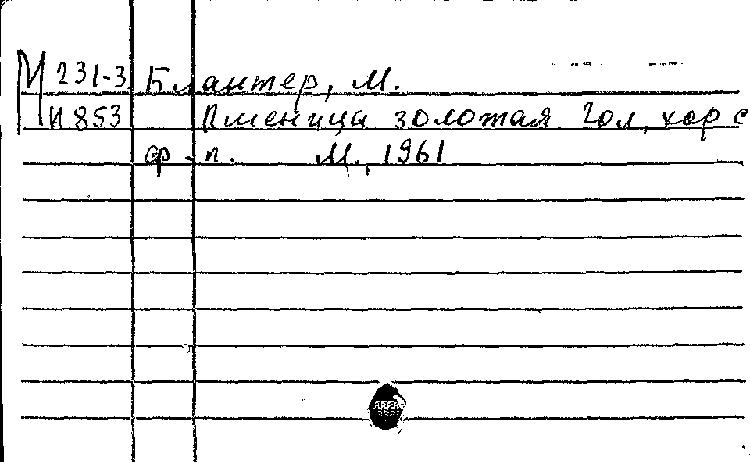 М 231-3 Блантер, М.
И 853 Пшеница золотая. Гол, хор с
ф.-п. М., 1961